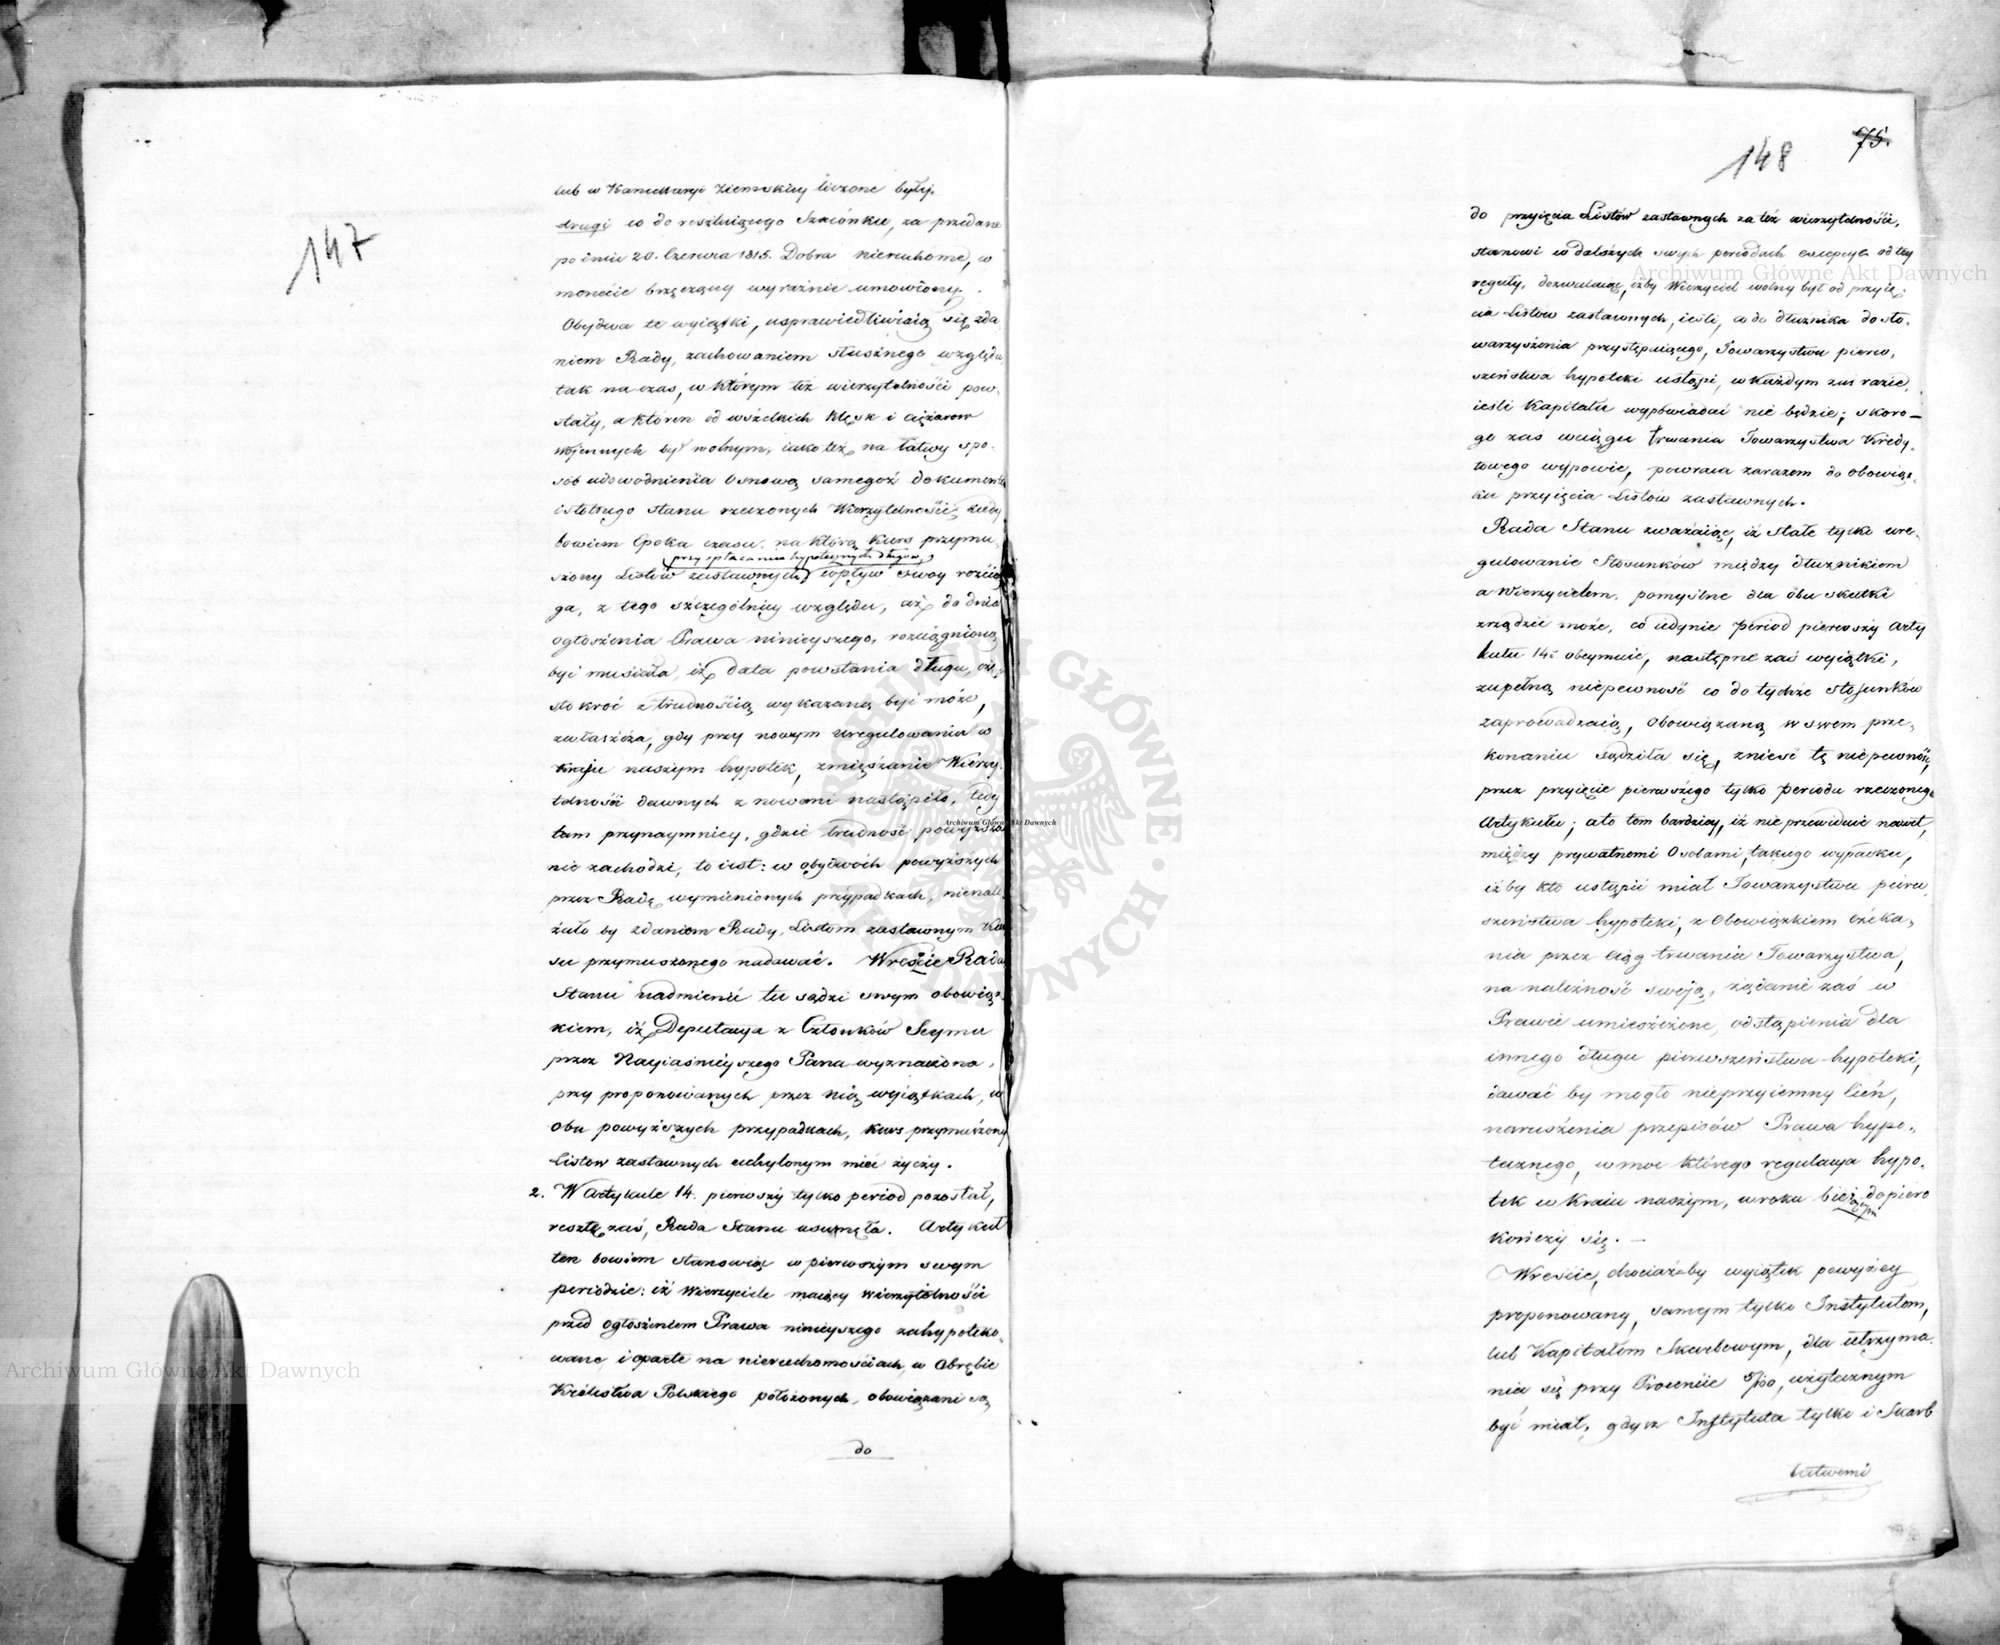 147
lub w Kancellaryi Ziemskiey liczone były.
drugi co do resztuiącego Szacunku, za przedane
po dniu 20. Czerwca 1815. Dobra nieruchome, w
monecie brzęczącey wyraźnie umowiony.
Obydwa te wyiątki, usprawiedliwiaią się zda-
niem Rady, zachowaniem słusznego względu
tak na czas, w którym też wierzytelności pow-
stały, a któren od wszelkich klęsk i ciężarow
wojennych był wolnym, iako też na łatwy spo-
sób udowodnienia osnową samegoż dokumentu
istotnego stanu rzeczonych Wierzytelności, kiedy
bowiem Epoka czasu, na którą kurs przymu-
przy spłacaniu hypotecznych długow,
szony Listów zastawnych wpływ swoy rozcią-
ga, z tego szczególniey względu, aż do dnia
ogłoszenia Prawa ninieyszego, rozciągnioną
być musiała, iż data powstania długu, czę-
sto kroć z trudnością wykazaną być może,
zwłaszcza, gdy przy nowym uregulowaniu w
kraju naszym hypotek, zmięszanie Wierzy-
telności dawnych z nowemi nastąpiło, tedy
tam przynaymniey, gdzie trudność powyższa
nie zachodzi, to iest: w obydwóch powyższych
przez Radę wymienionych przypadkach, nienale-
żało by zdaniem Rady, Listom zastawnym Kur
su przymuszonego nadawać. Wreście Rada
Stanu nadmienić tu sądzi swym obowiąz-
kiem, iż Deputacya z Członków Seymu
przez Nayiaśnieyszego Pana wyznaczona,
przy proponowanych przez nią wyiątkach, w
obu powyższych przypadkach, kurs przymuszony
Listow zastawnych uchylonym mieć życzy.
2. W Artykule 14. pierwszy tylko period pozostał,
resztę zaś, Rada Stanu usunęła. Artykuł
ten bowiem stanowiąc w pierwszym swym
periodzie: iż Wierzyciele maiący wierzytelności
przed ogłoszeniem Prawa ninieyszego zahypoteko-
wane i oparte na nieruchomościach, w obrębie
Królestwa Polskiego położonych, obowiązani są
do
148
75.
do przyięcia Listów zastawnych za też wierzytelności,
stanowi w dalszych swych periodach excepcye od tey
reguły, dozwalaiąc, iżby Wierzyciel wolny był od przyię-
cia Listów zastawnych, ieśli, co do dłużnika do sto-
warzyszenia przystępuiącego, Towarzystwu pierw-
szeństwa hypoteki ustąpi, w każdym zaś razie,
ieśli Kapitału wypowiadać nie będzie; skoro-
go zaś wciągu trwania Towarzystwa Kredy-
towego wypowie, powraca zarazem do obowiąz-
ku przyięcia Listów zastawnych.
Rada Stanu zważaiąc, iż stałe tylko ure-
gulowanie Stosunków między dłuznikiem
a Wierzycielem, pomyślne dla obu skutki
zrządzić może, co iedynie period pierwszy Arty
kułu 14. obeymuie, następne zaś wyiątki,
zupełną niepewność co do tychże stosunków
zaprowadzaią, obowiązaną w swem prze-
konaniu sądziła się, znieść tę niepewność,
przez przyięcie pierwszego tylko periodu rzeczonego
Artykułu; a to tem bardziey, iż nie przewiduie nawet,
między prywatnemi Osobami, takiego wypadku,
iżby kto ustąpić miał Towarzystwu pierw-
szeństwa hypoteki, z obowiązkiem czeka-
nia przez ciąg trwania Towarzystwa,
na należność swoją, żądanie zaś w
Prawie umieszczone, odstąpienia dla
innego długu pierwszeństwa hypoteki,
dawać by mogło nieprzyiemny cień,
naruszenia przepisów Prawa hypo-
tecznego, w moc którego regulacya hypo-
tek w kraiu naszym, w roku bieżącym dopiero
kończy się. —
Wreście, chociażby wyiątek powyżey
proponowany, samym tylko Instytutom,
lub Kapitałom Skarbowym, dla utrzyma-
nia się przy Procencie 5/100, użytecznym
być miał, gdyż Instytuta tylko i Skarb
łatwemi